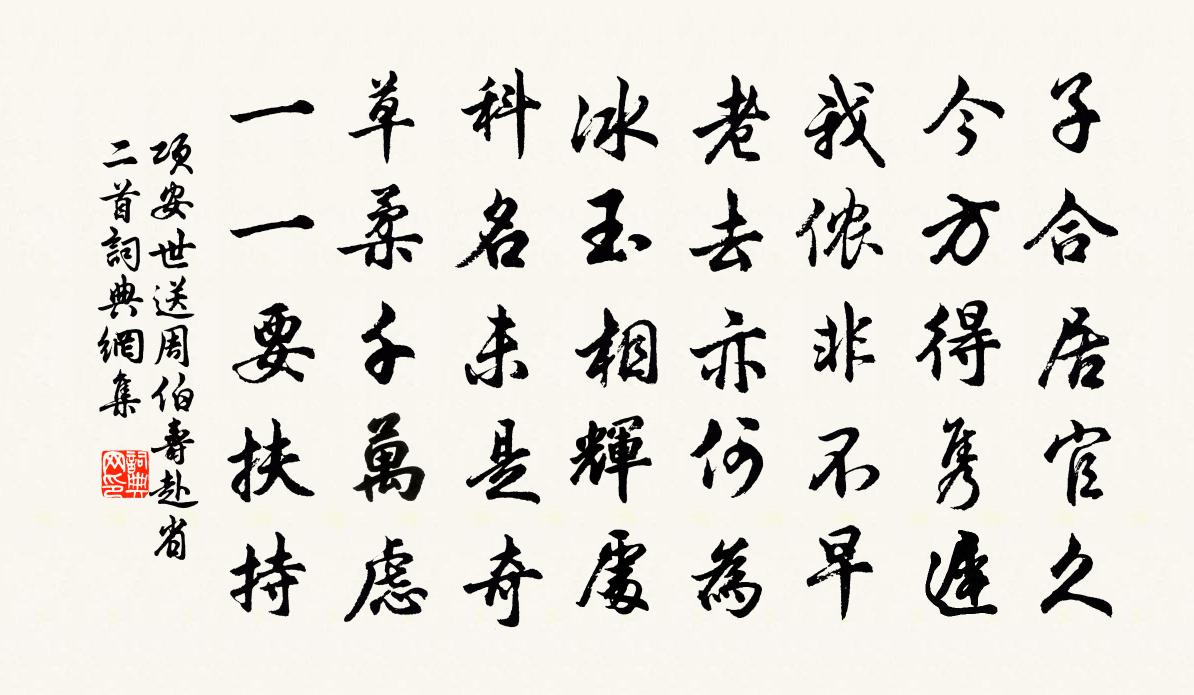 子合居官久
今方得隽遲
我侬非不早
老去亦何為
冰玉相輝處
科名未是奇
草柔千萬慮
一一要扶持
項安世送周伯壽赴省
二首詞典網集
詞典
网印